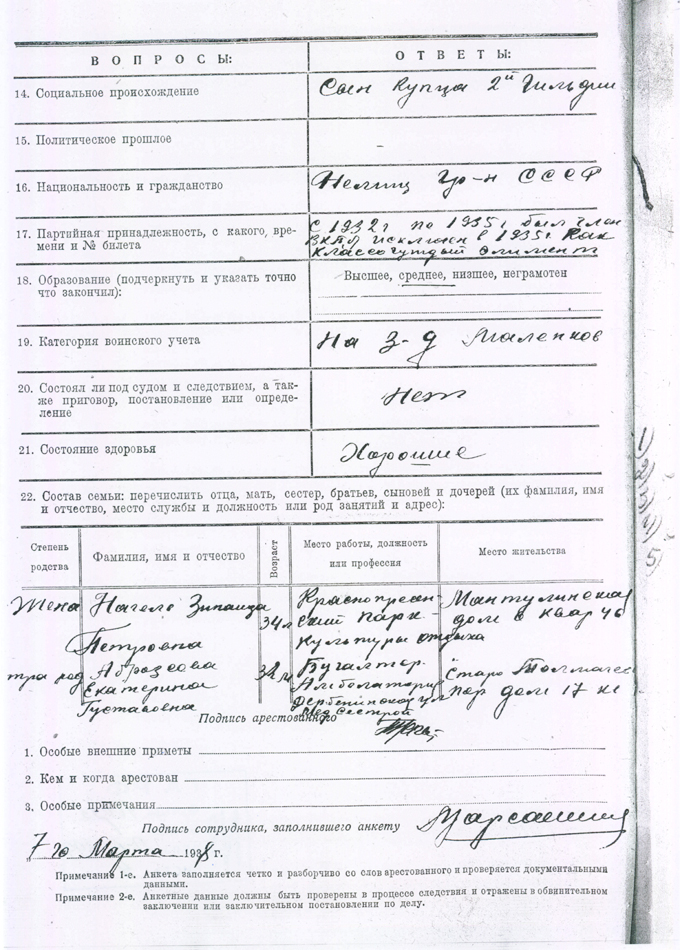 ВОПРОСЫ: ОТВЕТЫ:
14. Социальное происхождение Сын Купца 2й Гильдии
15. Политическое прошлое
16. Национальность и гражданство Немец гр-н СССР
17. Партийная принадлежность, с какого, вре-
мени и № билета
С 1932г по 1935г был член
ВКПб исключен в 1935г как
классочуждый элимент
18. Образование (подчеркнуть и указать точно
что закончил):
Высшее, среднее, низшее, неграмотен
19. Категория воинского учета На З-д
20. Состоял ли под судом и следствием, а так-
же приговор, постановление или опреде-
ление
Нет
21. Состояние здоровья Хорошие
22. Состав семьи: перечислить отца, мать, сестер, братьев, сыновей и дочерей (их фамилия, имя
и отчество, место службы и должность или род занятий и адрес):
Степень
родства
Фамилия, имя и отчество
Возраст
Место работы, должность
или профессия
Место жительства
Жена Нагель Зинаида
Петровна
34 л
Краснопресн-
ский парк
культуры отдыха
Бугалтор
Мантулинская
дом 6 квар 46
Абразсова
Екатерина
Густавовна
Мед Сестрой
Старо Толмачев
пер дом 17 кв
Подпись арестованного
1. Особые внешние приметы
2. Кем и когда арестован
3. Особые примечания
Подпись сотрудника, заполнившего анкету
7 го Марта 1938 г.
Примечание 1-е. Анкета заполняется четко и разборчиво со слов арестованного и проверяется документальными
данными.
Примечание 2-е. Анкетные данные должны быть проверены в процессе следствия и отражены в обвинительном
заключении или заключительном постановлении по делу.